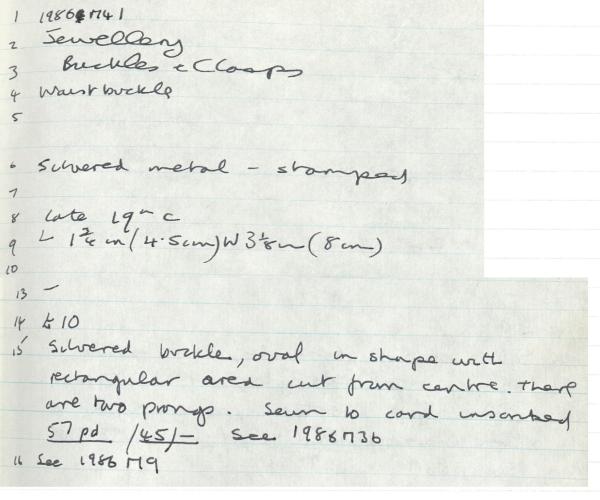 1 1986 M41
2 Jewellery
3 Buckles & Clasps
4 Waist buckle
5
6 Silvered metal - stamped
7
8 Late 19th C
9 L 1 3/4 in (4.5cm) W 3 1/8 in (8cm)
10
13 -
14 10
15 Silvered buckle, oval in shape with
rectangular area cut from centre. There
are two prongs. Sewn to card inscribed
57 pd /45/- See 1986 M36
16 See 1986 M9